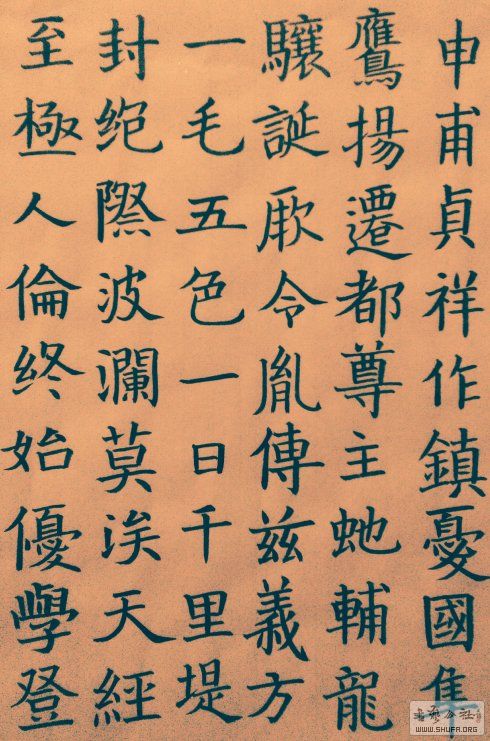 申甫貞祥作鎮憂國隼
鷹揚遷都尊主虵輔龍
驤誕厥令胤傳茲義方
一毛五色一日千里堤
封絶際波瀾莫涘天經
至極人倫終始優學登
書藝公社
WWW.SHUFA.ORG